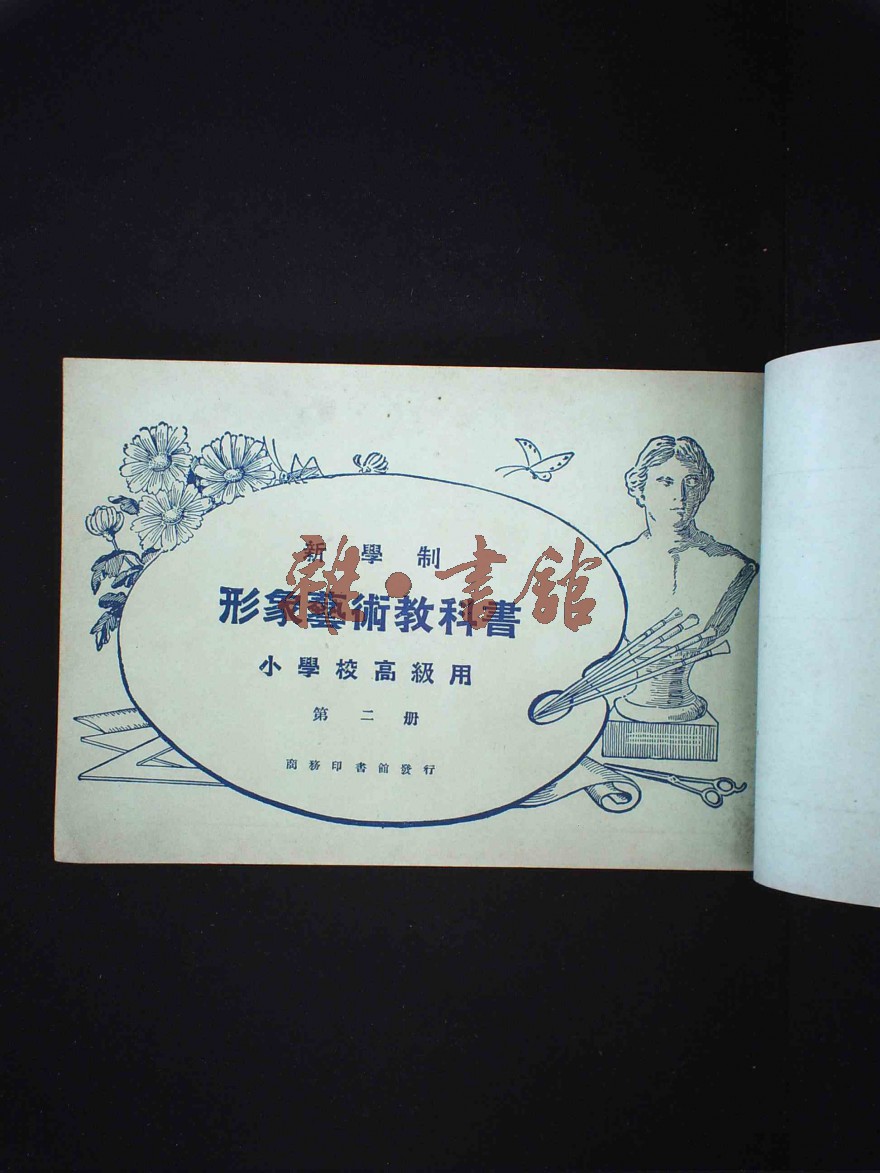 新學制
形象藝術教科書
小學校高級用
第二册
商務印書館發行
雜·書館